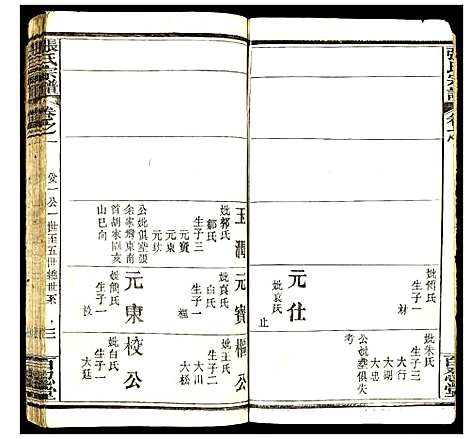 張氏宗譜
妣傅氏
生子一
材
元仕
妣袁氏
止
妣朱氏
生子五
大行
大湖
大忠
公妣墳俱失
考
張氏宗譜
卷之一
一世至五世總世系
三
百忍堂
玉潤
妣鄒氏
生子三
元寶
元東
公妣俱塋張
余家塆東南
首胡家園亥
山巳向
元寶
妣袁氏
白氏
生子一
楷
元東
妣熊氏
生子一
校
楷公
妣王氏
生子二
大川
大松
校公
妣白氏
生子一
大廷